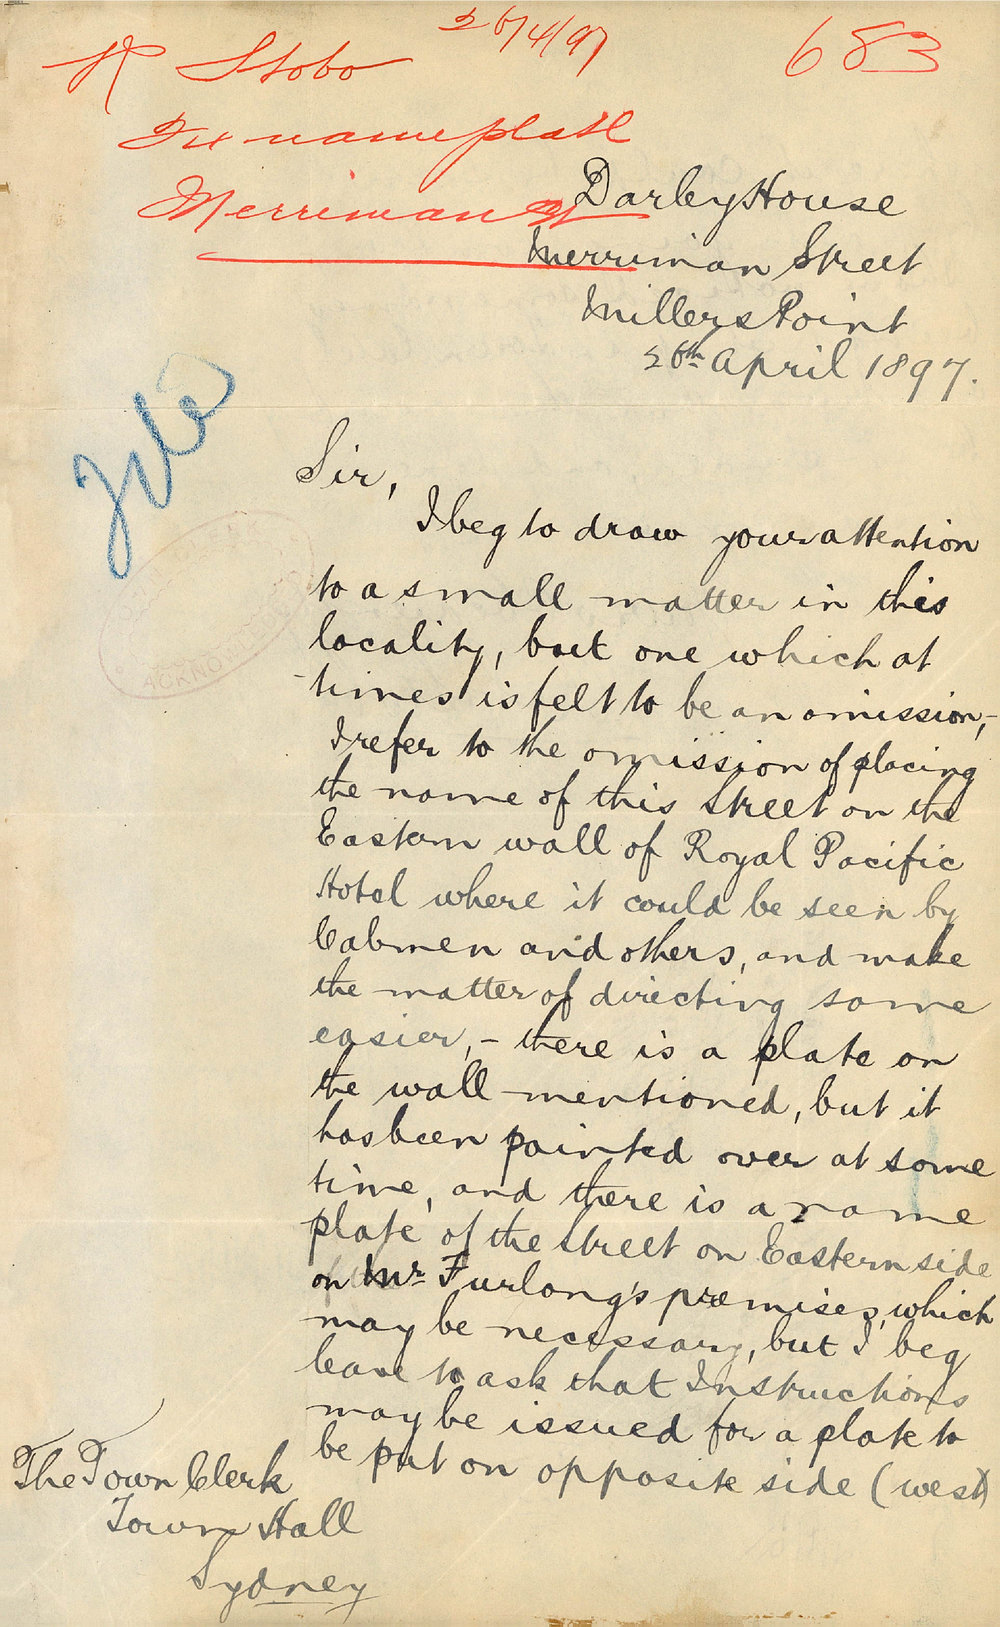 26/4/97
683
R Stobo
Fix nameplate
Merriman St
Darley House
Merriman Street
Millers Point
26th April 1897.
File
Sir,
I beg to draw your attention
to a small matter in this
locality, but one which at
times is felt to be an omission,-
I refer to the omission of placing
the name of this Street on the
Eastern wall of Royal Pacific
Hotel where it could be seen by
Cabmen and others, and make
the matter of directing some
easier,- there is a plate on
the wall mentioned, but it
has been painted over at some
time, and there is a name
plate of the Street on Eastern side
on Mr. Furlong's premises, which
may be necessary, but I beg
leave to ask that Instructions
may be issued for a plate to
be put on opposite side (west)
The Town Clerk
Town Hall
Sydney